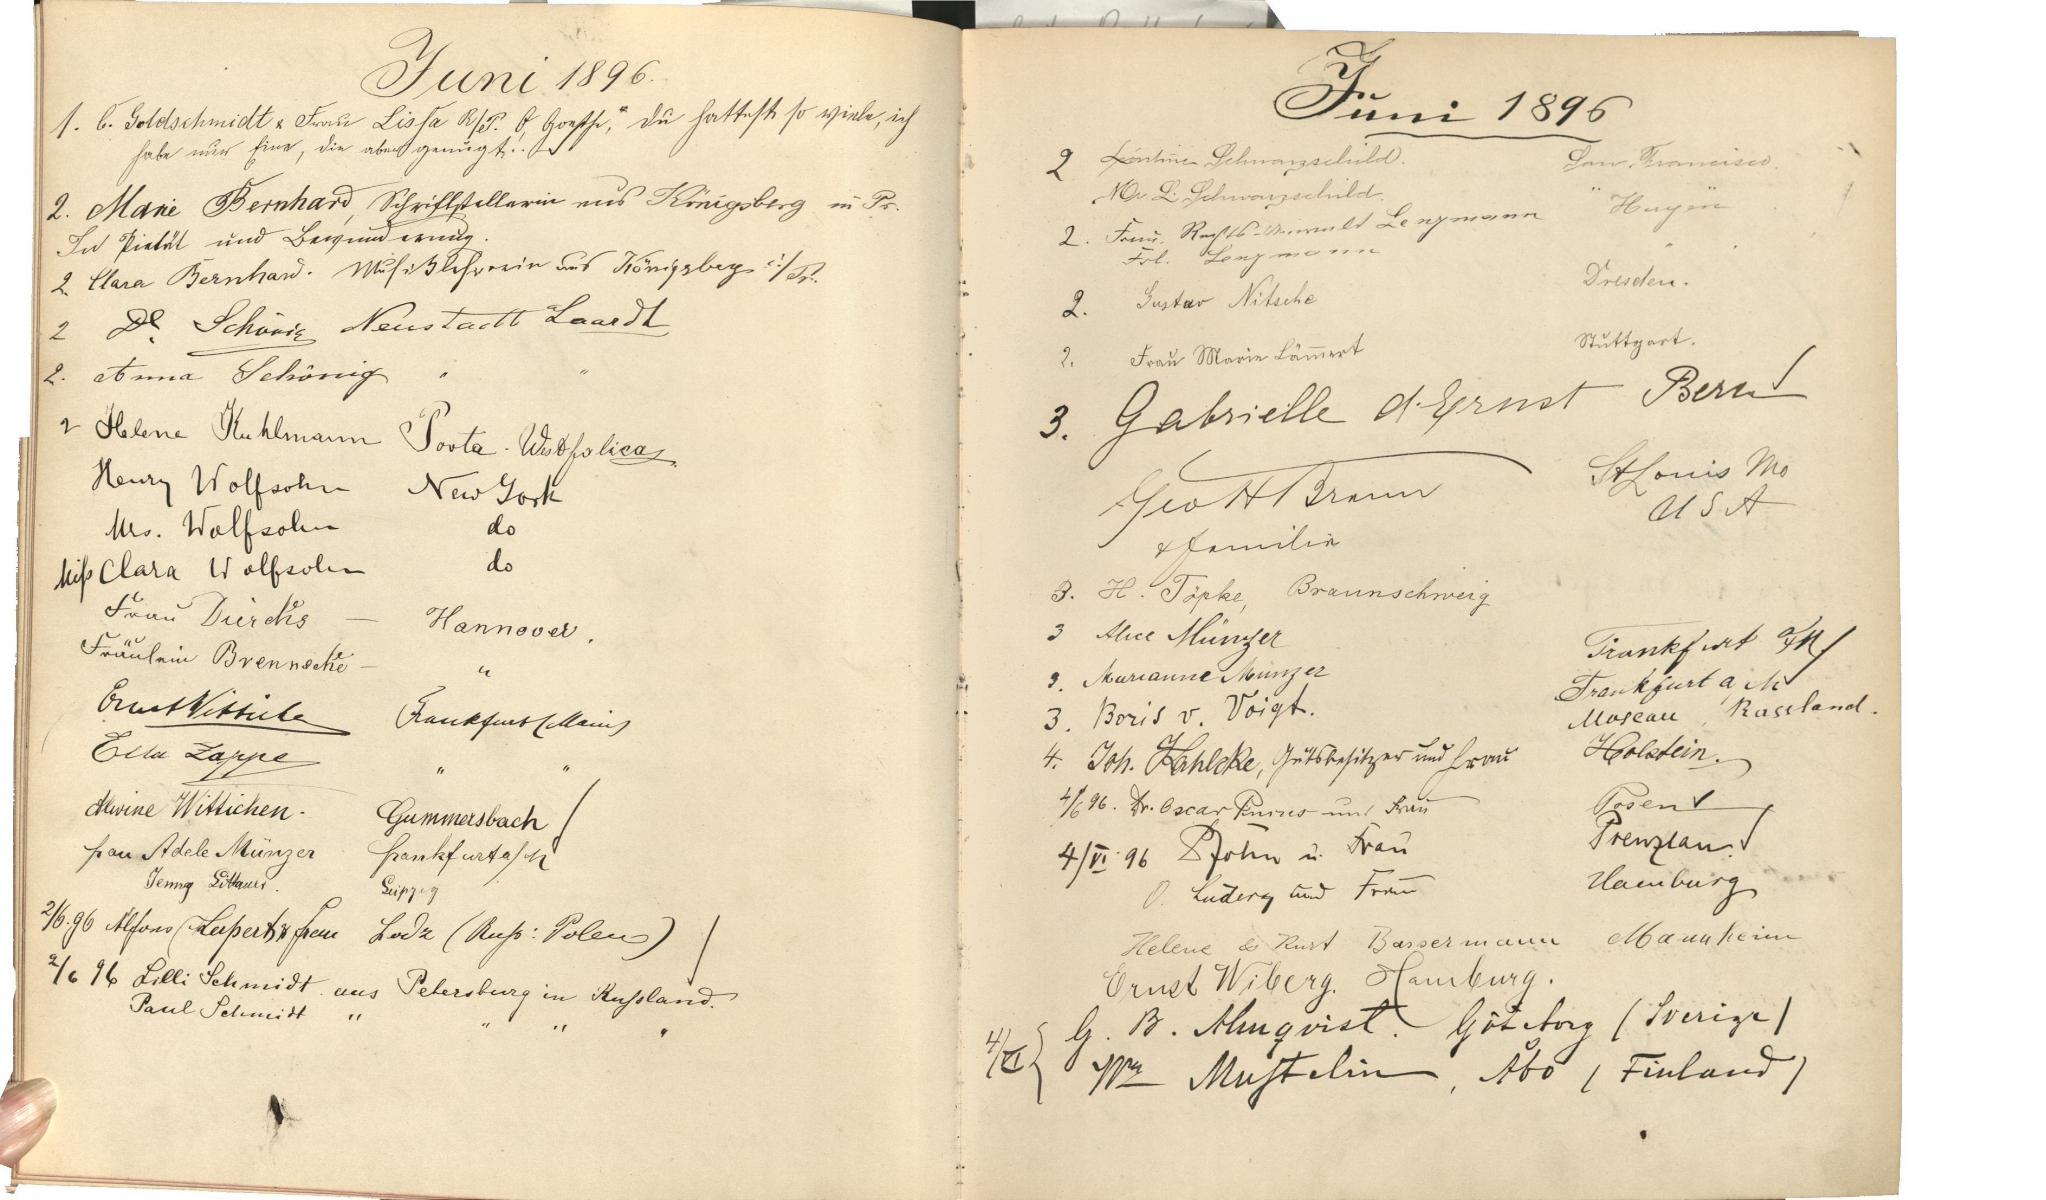 Juni 1896.
1. C. Goldschmidt & Frau Lissa R/P. O Goethe, "du hattest so viele, ich
habe nur Eine, die aber genügt."
2. Marie Bernhard, Schriftstellerin aus Königsberg in Pr.
In Pietät und Bewunderung.
2. Clara Bernhard. Musiklehrerin aus Königsberg i/Pr.
2 Dr. Schönig Neustadt Haardt
2. Anna Schönig " "
2 Helene Kuhlmann Porta-Westfalica
Henry Wolfsohn New York
Mrs. Wolfsohn do
Miss Clara Wolfsohn do
Frau Dierchs — Hannover.
Fräulein Brennecke — "
Ernst Frankfurt (Main)
Ella Zappe " "
Alwine Wittichen. Gummersbach
Frau Adele Münzer Frankfurt a/M
Jenny Littauer. Leipzig
2/6.96 Alfons & Frau Lodz (Russ: Polen)
2/6 96 Lilli Schmidt aus Petersburg in Russland.
Paul Schmidt " " " "
Juni 1896
2 Leontine Schwarzschild. San Francisco.
Mr L. Schwarzschild. "
2. Frau Rechts-Anwalt Lenzmann Hagen
Frl. Lenzmann "
2. Gustav Nitsche Dresden.
2. Frau Marie Lämmert Stuttgart.
3. Gabrielle d'Ernst Bern
Geo H Braun St Louis Mo
& Familie USA
3. H. Töpke, Braunschweig
3 Alice Münzer Frankfurt a/M
3. Marianne Münzer Frankfurt a M
3. Boris v. Voigt. Moscau, Russland.
4. Joh. Kahlcke, Gutsbesitzer und Frau Holstein.
4/6 96. Dr. Oscar und Frau Posen
4/VI 96 John u. Frau Prenzlau.
O. Luderg und Frau Hamburg
Helene & Kurt Bassermann Mannheim
Ernst Wiberg. Hamburg.
4/VI G. B. Almqvist. Göteborg (Sverige)
Wm Mustelin, Åbo (Finland)